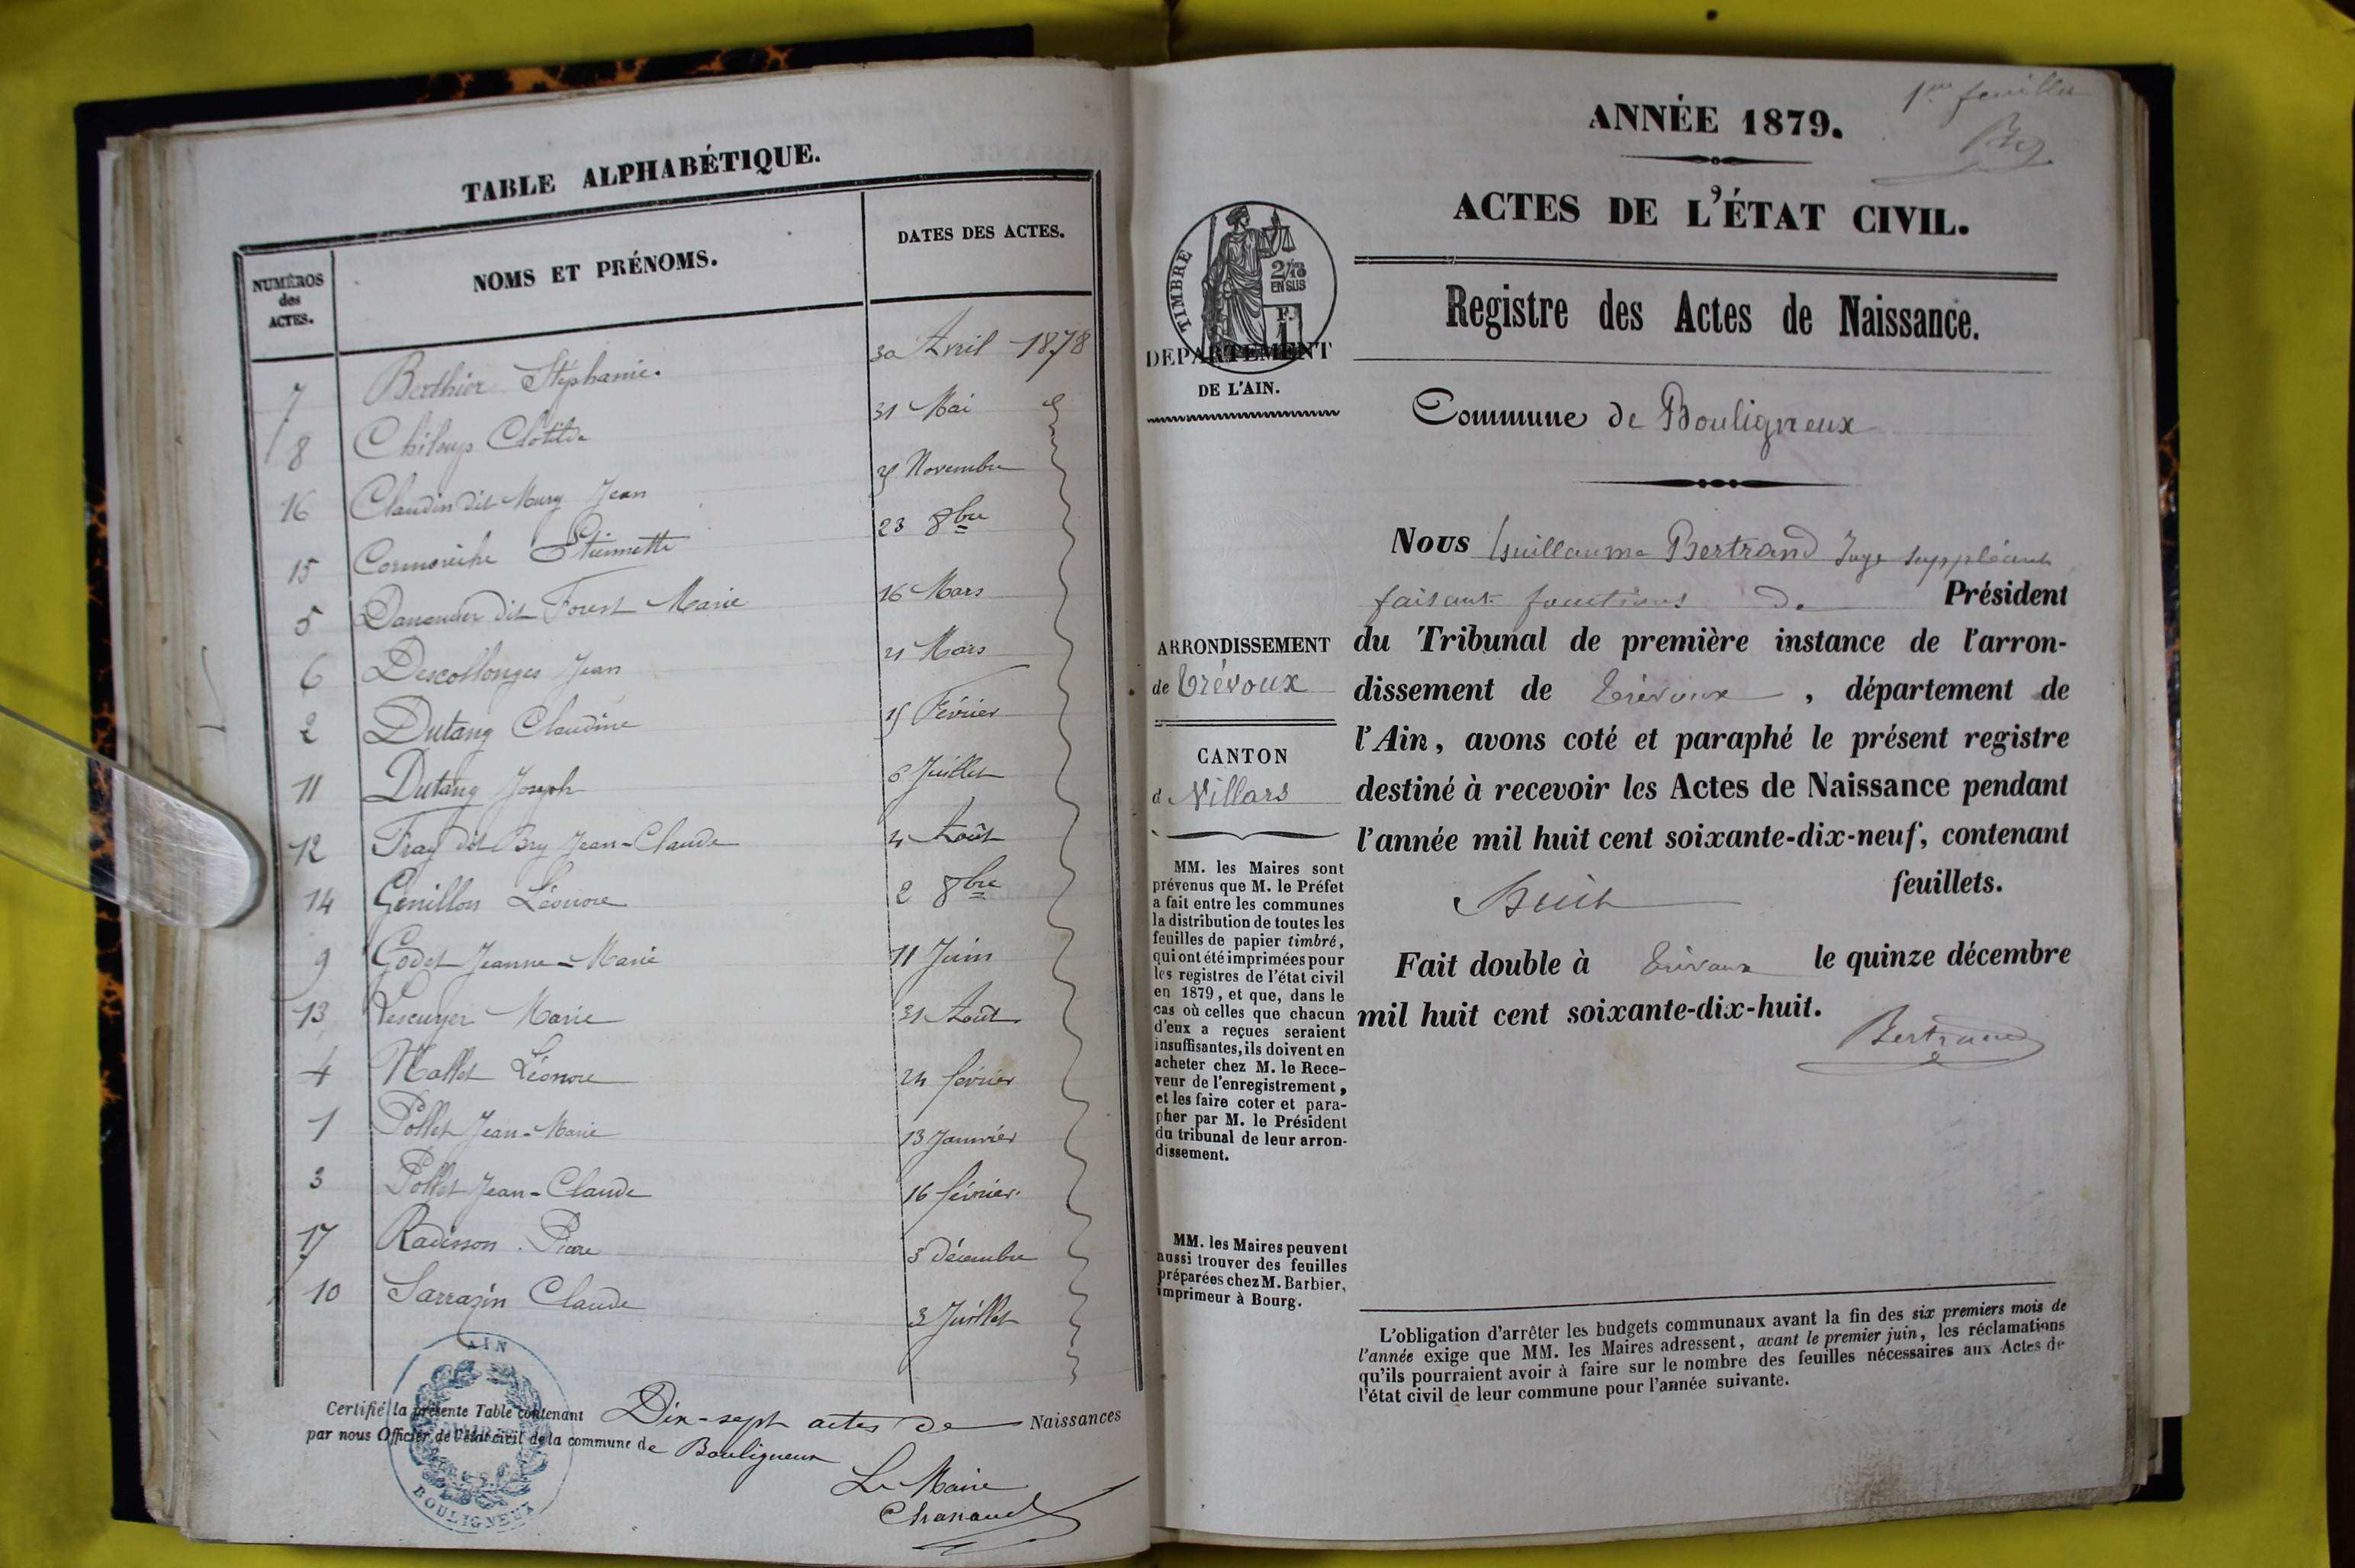 TABLE ALPHABÉTIQUE.
NUMÉROS des ACTES. NOMS ET PRÉNOMS. DATES DES ACTES.
7 Berthier Stéphanie. 30 Avril 1878
8 Chiloup Clotilde 31 Mai
16 Claudin dit Mury Jean Novembre
15 Étiennette 23 8bre
5 dit Forest Marie 16 Mars
6 Descollonges Jean 21 Mars
2 Dutang Claudine 15 Février
11 Dutang Joseph 6 Juillet
12 Fray dit Bry Jean-Claude 4 Août
14 Genillon Léonore 2 8bre
9 Godet Jeanne-Marie 11 Juin
13 Lescuyer Marie 31 Août
4 Mallet Léonore 24 février
1 Pollet Jean-Marie 13 Janvier
3 Pollet Jean-Claude 16 février.
17 Radisson Pierre 3 Décembre
10 Sarrazin Claude 3 Juillet
Certifié la présente Table contenant Dix-sept actes de Naissances
par nous Officier de l'état civil de la commune de Bouligneux
Le Maire
Chanaud
AIN
BOULIGNEUX
1er feuillet
ANNÉE 1879.
ACTES DE L'ÉTAT CIVIL.
Registre des Actes de Naissance.
TIMBRE
2/10
EN SUS
F.
1
DEPARTEMENT
DE L'AIN.
Commune de Bouligneux
ARRONDISSEMENT
de Trévoux
CANTON
d Villars
MM. les Maires sont
prévenus que M. le Préfet
a fait entre les communes
la distribution de toutes les
feuilles de papier timbré,
qui ont été imprimées pour
les registres de l'état civil
en 1879, et que, dans le
cas où celles que chacun
d'eux a reçues seraient
insuffisantes, ils doivent en
acheter chez M. le Rece-
veur de l'enregistrement,
et les faire coter et para-
pher par M. le Président
du tribunal de leur arron-
dissement.
MM. les Maires peuvent
aussi trouver des feuilles
préparées chez M. Barbier,
imprimeur à Bourg.
Nous Guillaume Bertrand Juge suppléant
faisant fonctions de Président
du Tribunal de première instance de l'arron-
dissement de Trévoux , département de
l'Ain, avons coté et paraphé le présent registre
destiné à recevoir les Actes de Naissance pendant
l'année mil huit cent soixante-dix-neuf, contenant
huit feuillets.
Fait double à Trévoux le quinze décembre
mil huit cent soixante-dix-huit.
Bertrand
L'obligation d'arrêter les budgets communaux avant la fin des six premiers mois de
l'année exige que MM. les Maires adressent, avant le premier juin, les réclamations
qu'ils pourraient avoir à faire sur le nombre des feuilles nécessaires aux Actes de
l'état civil de leur commune pour l'année suivante.